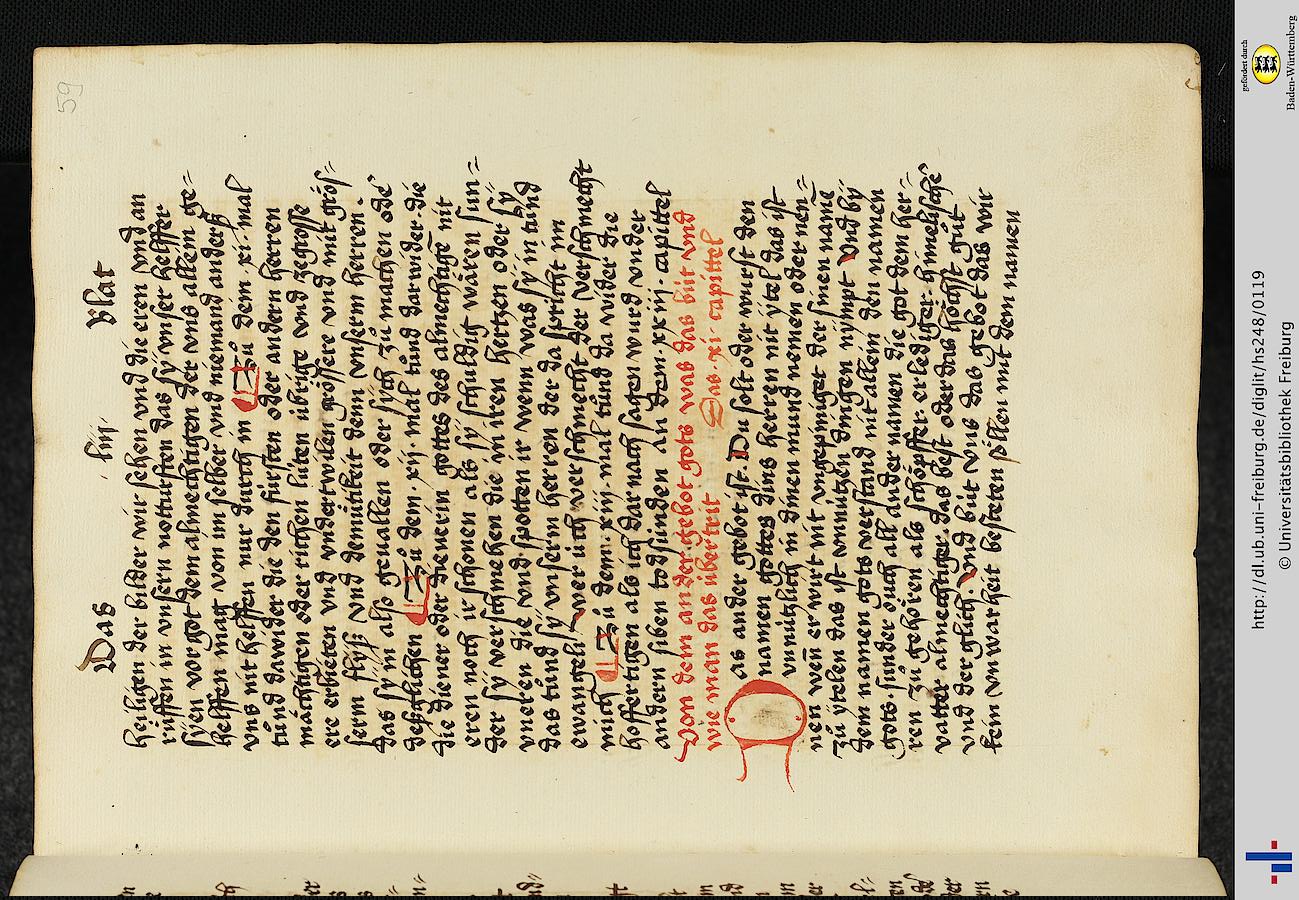 59
Das liij Blat
heiligen der bilder wir sehen vnd die eren vnd an
rüffen in vnsern notturften das sÿ vnser helffer
sÿen vor got dem almechtigen der vns allem ge=
helffen mag von im selber vnd niemand anderß
vns nit helffen nur durch in Zů dem .xi. mal
tůnd dawider die den fürsten oder andern herren
mächtigen oder richen lüten übrige vnd zegrosse
ere erbieten vnd vndertwilen grössere vnd mit grös=
serm flÿß vnd demütikeit denn vnserm herren.
das sÿ in also geuallen oder sÿch zů machen ode
deßglichen Zů dem .xij. mal tůnd darwider die
die diener oder dienerin gottes des almechtigē nit
eren noch ir schonen als sÿ schuldig wären sun=
der sÿ verschmehen die in iren hertzen oder sÿ
vneren die vnd spotten ir wenn was sÿ in tůnd
das tůnd sÿ vnsern herren der da spricht im
ewangeli wer üch verschmecht der verschmecht
mich Zů dem .xiij. mal tůnd da wider die
hoffertigen als ich dar nach sagen wurd vnder
andern siben todsünden An dem .xxiij. capittel
Von dem ander gebot gots was das büt vnd
wie man das übertrit Das .xi. capittel
Das ander gebot ist. Du solt oder wurst den
namen gottes dins herren nit ÿtel das ist
vnnützlich in dinen mund nemen oder nen=
nen wen er wirt nit vngepiniget der sinen namē
zů ÿtelen das ist vnnützen dingen nÿmpt vnd bÿ
dem namen gots verstand nit allein den namen
gots sunder ouch all ander namen die got dem her=
ren zů gehören als schöpffer. erlediger. himelsche
vatter almechtiger. das best oder das höchst gůt
vnd der glich. vnd büt vns das gebot das wir
kein vnwarheit bestetten söllen mit dem namen
gefördert durch
Baden-Württemberg
http://dl.ub.uni-freiburg.de/diglit/hs248/0119
© Universitätsbibliothek Freiburg